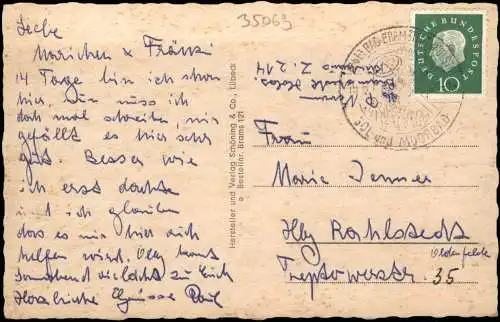 35069
Liebe
Mariechen & Fränzi
14 Tage bin ich schon
hier. Nun muss ich
doch mal schreiben, mir
gefällt es hier sehr
gut. Besser wie
ich erst dachte
und ich glaube
dass es mir hier auch
helfen wird.
Sonnabend vielleicht zu Euch
Herzliche Grüsse Paul
Hersteller und Verlag Schöning & Co., Lübeck
Bestellnr. Brams 121
DEUTSCHE BUNDESPOST
10
SOL und MOORBAD
Frau
Marie
Hbg Rahlstedt
Oldenfelde
Treptowerstr. 35